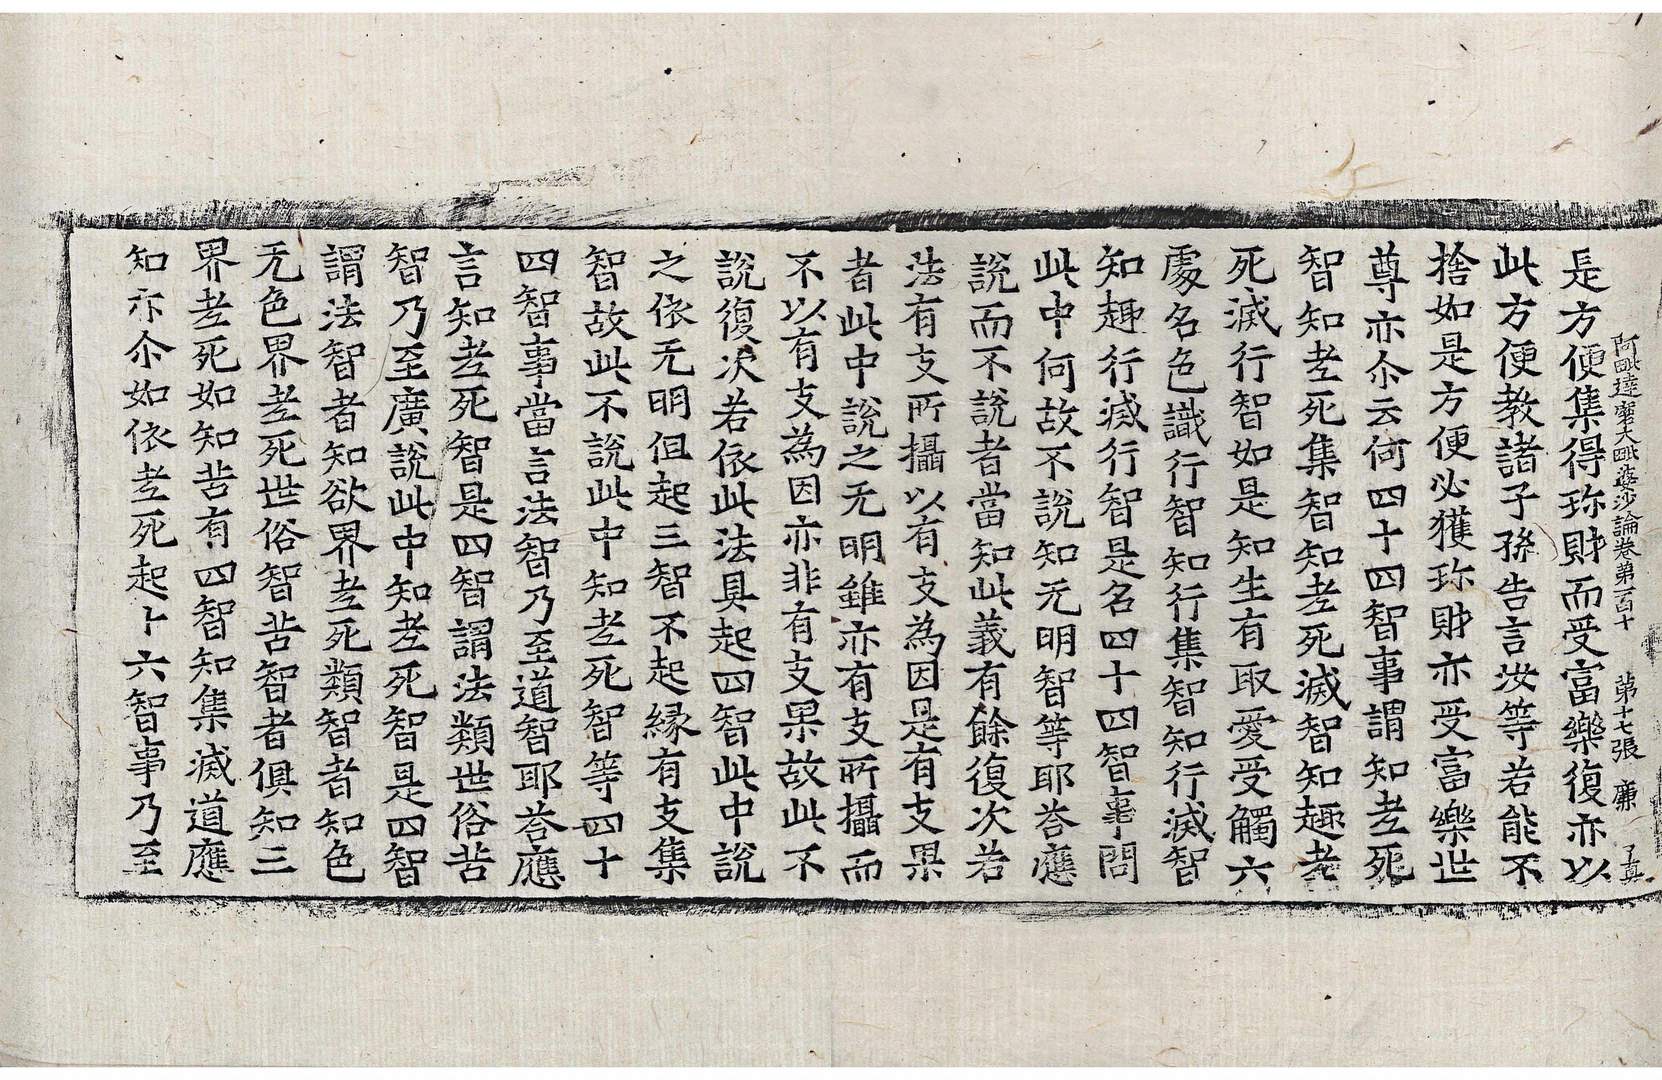 阿毗達磨大毗婆沙論卷第一百十 第十七張 廉 了真
是方便集得珎財而受富樂復亦以
此方便教諸子孫告言汝等若能不
捨如是方便必獲珎財亦受富樂世
尊亦尒云何四十四智事謂知老死
智知老死集智知老死滅智知趣老
死滅行智如是知生有取愛受觸六
處名色識行智知行集智知行滅智
知趣行滅行智是名四十四智事問
此中何故不說知无明智等耶荅應
說而不說者當知此義有餘復次若
法有支所攝以有支為因是有支果
者此中說之无明雖亦有支所攝而
不以有支為因亦非有支果故此不
說復次若依此法具起四智此中說
之依无明但起三智不起緣有支集
智故此不說此中知老死智等四十
四智事當言法智乃至道智耶荅應
言知老死智是四智謂法類世俗苦
智乃至廣說此中知老死智是四智
謂法智者知欲界老死類智者知色
无色界老死世俗智苦智者俱知三
界老死如知苦有四智知集滅道應
知亦尒如依老死起卜六智事乃至